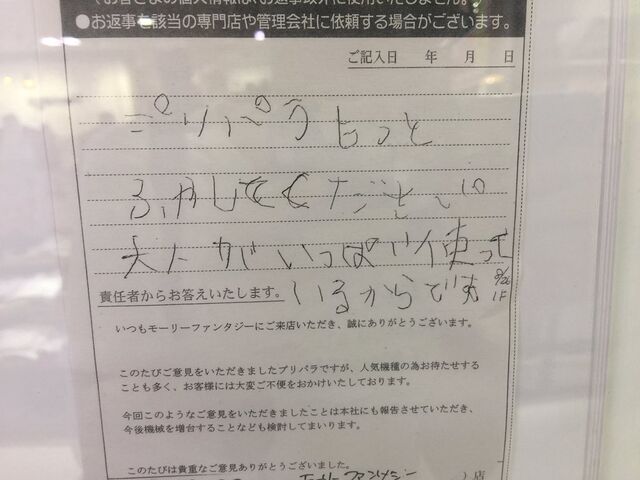 ●お返事を該当の専門店や管理会社に依頼する場合がございます。
ご記入日　年　月　日
プリパラもっと
ふやしてください
大人がいっぱい使って
いるからです
9/26
1F
責任者からお答えいたします。
いつもモーリーファンタジーにご来店いただき、誠にありがとうございます。
このたびご意見をいただきましたプリパラですが、人気機種の為お待たせする
ことも多く、お客様には大変ご不便をおかけいたしております。
今回このようなご意見をいただきましたことは本社にも報告させていただき、
今後機械を増台することなども検討してまいります。
このたびは貴重なご意見ありがとうございました。
店